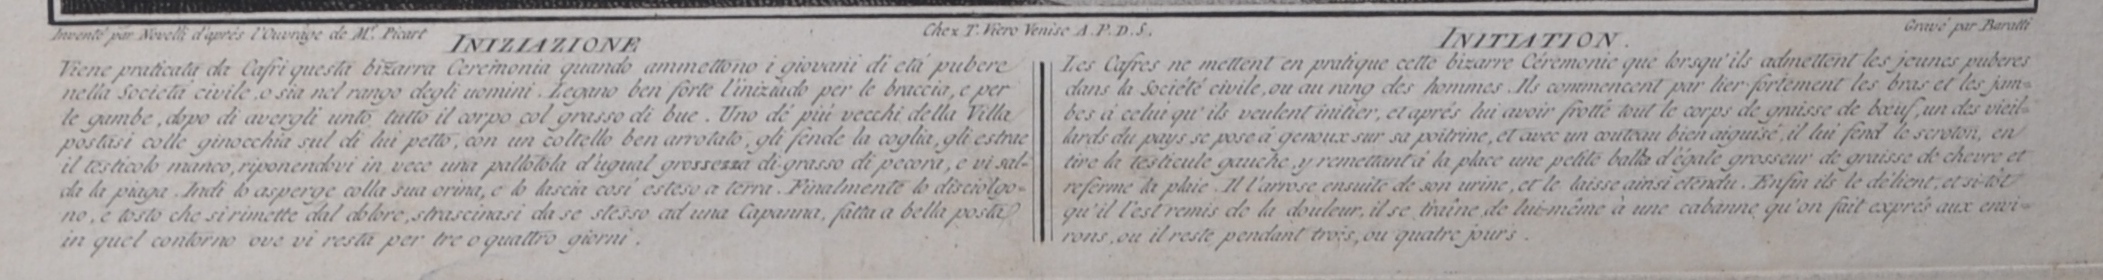 Inventé par Novelli d'aprés l'Ouvrage de Mr. Picart
Chex T. Viero Venise A. P. D. S.
Gravé par Baratti
INIZIAZIONE
Viene praticata da Cafri questa bizarra Ceremonia quando ammettono i giovani di etá pubere
nella Societá civile, o sia nel rango degli uomini. Legano ben forte l'iniziado per le braccia, e per
le gambe, dopo di avergli unto tutto il corpo col grasso di bue. Uno dé piú vecchi della Villa
postasi colle ginocchia sul di lui petto, con un coltello ben arrotato, gli fende la coglia, gli estrae
il testicolo manco, riponendovi in vece una pallotola d'ugual grossezza di grasso di pecora, e vi sal-
da la piaga. Indi lo asperge colla sua orina, e lo lascia cosí esteso a terra. Finalmente lo disciolgo-
no, e tosto che si rimette dal dolore, strascinasi da se stesso ad una Capanna, fatta a bella posta
in quel contorno ove vi resta per tre o quattro giorni.
INITIATION.
Les Cafres ne mettent en pratique cette bizarre Céremonie que lorsqu'ils admettent les jeunes puberes
dans la Société civile, ou au rang des hommes. Ils commencent par lier fortement les bras et les jam-
bes à celui qu'ils veulent initier, et aprés lui avoir frotté tout le corps de graisse de bœuf, un des vieil-
lards du pays se pose à genoux sur sa poitrine, et avec un couteau bien aiguisé, il lui fend le scroton, en
tire la testicule gauche, y remettant à la place une petite balle d'égale grosseur de graisse de chevre et
referme la plaie. Il l'arrose ensuite de son urine, et le laisse ainsi etendu. Enfin ils le délient, et si-tôt
qu'il l'est remis de la douleur, il se traîne de lui-même à une cabanne qu'on fait exprés aux envi-
rons, ou il reste pendant trois, ou quatre jours.